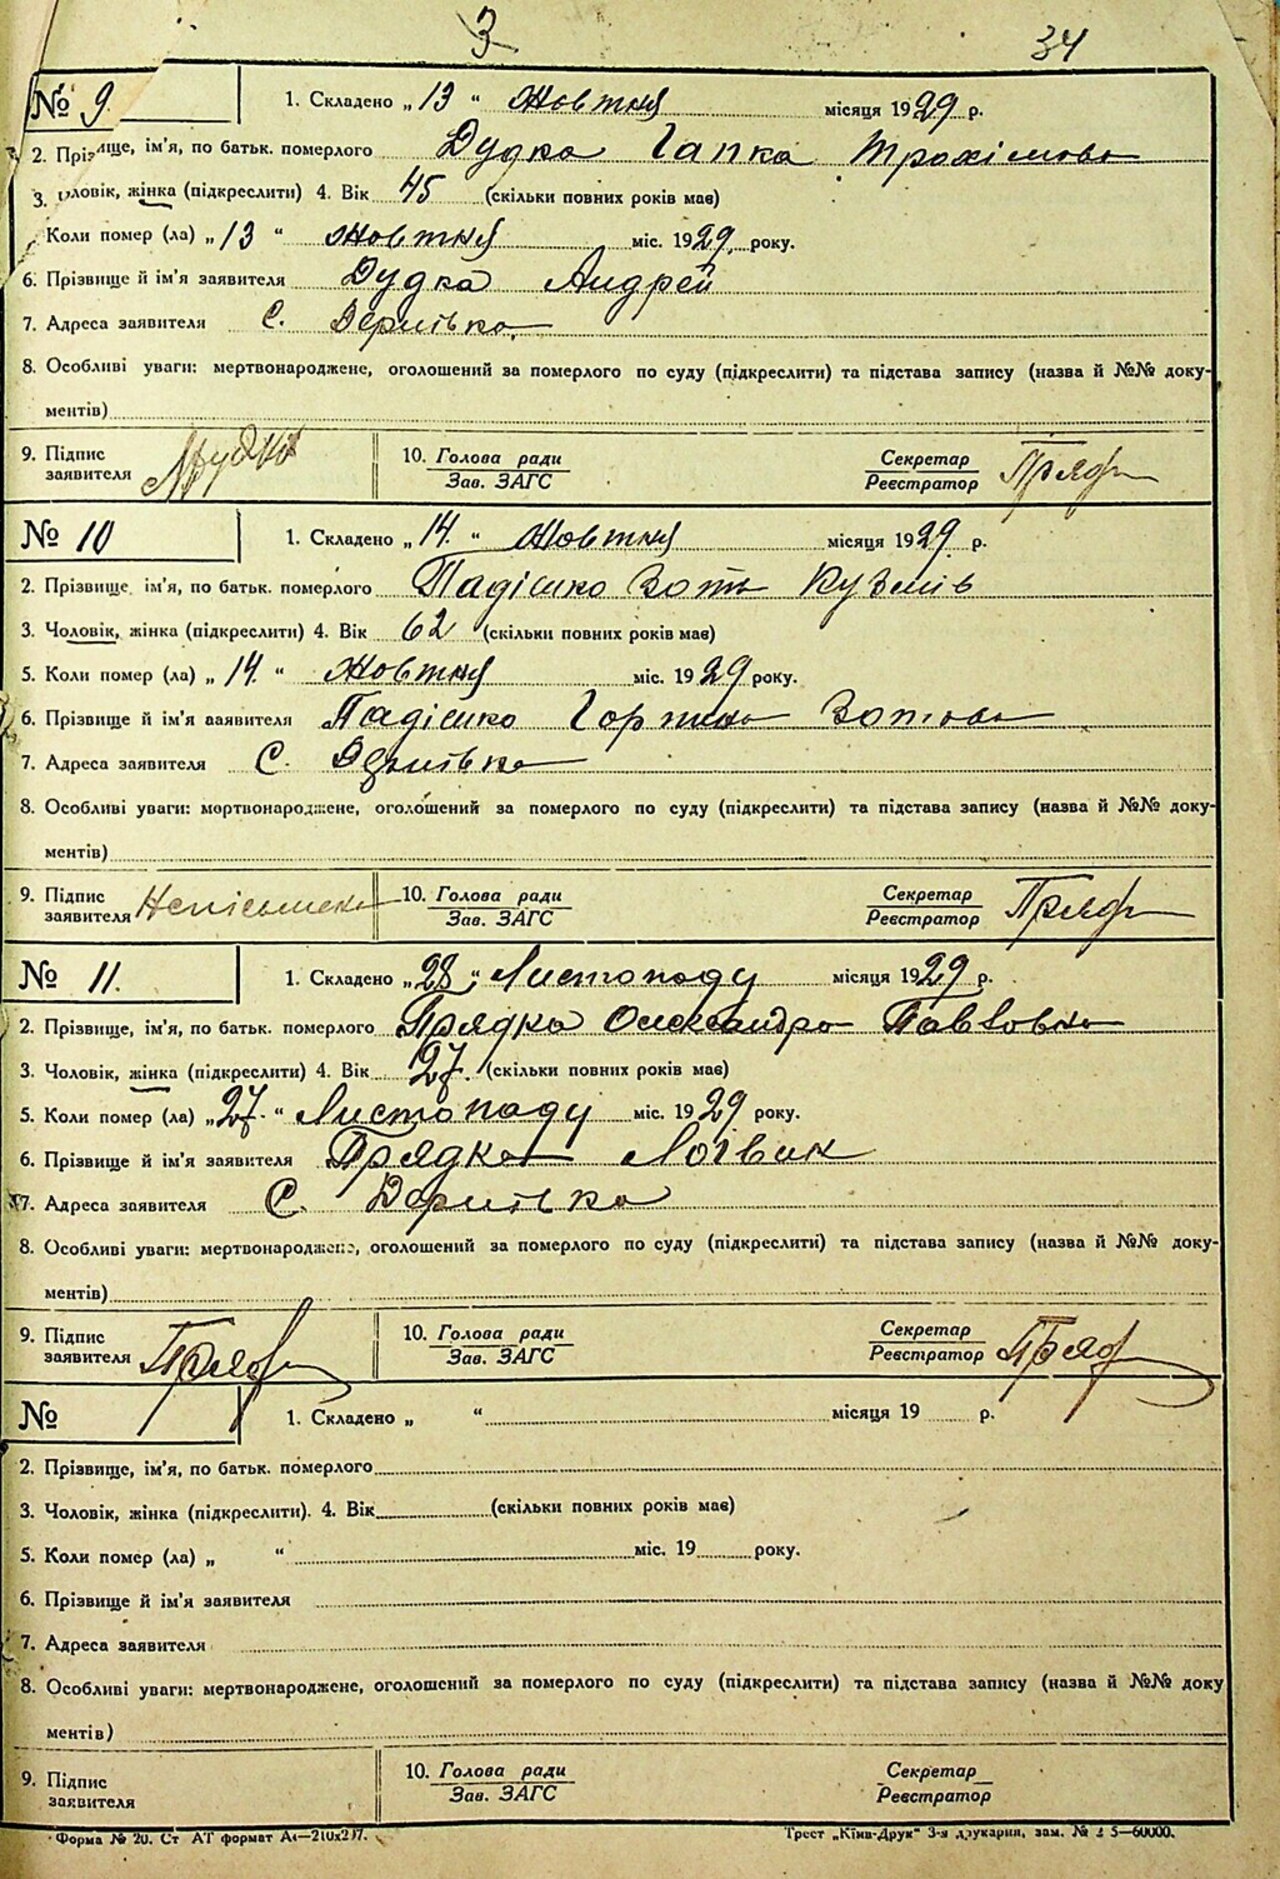 3
34
№ 9. 1. Складено „13“ Жовтня місяця 1929 р.
2. Прізвище, ім'я, по батьк. померлого Дудка Гапка Трохімова
3. Чоловік, жінка (підкреслити) 4. Вік 45 (скільки повних років має)
Коли помер (ла) „13“ жовтня міс. 1929. року.
6. Прізвище й ім'я заявителя Дудка Андрей
7. Адреса заявителя С.
8. Особливі уваги: мертвонароджене, оголошений за померлого по суду (підкреслити) та підстава запису (назва й №№ доку-
ментів)
9. Підпис заявителя 10. Голова ради Зав. ЗАГС Секретар Реєстратор
№ 10 1. Складено „14.“ Жовтня місяця 1929 р.
2. Прізвище, ім'я, по батьк. померлого Падішко Зотъ Кузмів
3. Чоловік, жінка (підкреслити) 4. Вік 62 (скільки повних років має)
5. Коли помер (ла) „14.“ Жовтня міс. 1929 року.
6. Прізвище й ім'я заявителя Падішко Горпина Зотова
7. Адреса заявителя С.
8. Особливі уваги: мертвонароджене, оголошений за померлого по суду (підкреслити) та підстава запису (назва й №№ доку-
ментів)
9. Підпис заявителя 10. Голова ради Зав. ЗАГС Секретар Реєстратор
№ 11. 1. Складено „28“ Листопаду місяця 1929 р.
2. Прізвище, ім'я, по батьк. померлого Прядка Олександра Павловна
3. Чоловік, жінка (підкреслити) 4. Вік 27. (скільки повних років має)
5. Коли помер (ла) „27.“ Листопаду міс. 1929 року.
6. Прізвище й ім'я заявителя Прядка Логвин
7. Адреса заявителя С.
8. Особливі уваги: мертвонароджене, оголошений за померлого по суду (підкреслити) та підстава запису (назва й №№ доку-
ментів)
9. Підпис заявителя 10. Голова ради Зав. ЗАГС Секретар Реєстратор
№ 1. Складено „ “ місяця 19 р.
2. Прізвище, ім'я, по батьк. померлого
3. Чоловік, жінка (підкреслити). 4. Вік (скільки повних років має)
5. Коли помер (ла) „ “ міс. 19 року.
6. Прізвище й ім'я заявителя
7. Адреса заявителя
8. Особливі уваги: мертвонароджене, оголошений за померлого по суду (підкреслити) та підстава запису (назва й №№ доку
ментів)
9. Підпис заявителя 10. Голова ради Зав. ЗАГС Секретар Реєстратор
Форма № 20. Ст АТ формат А4—210х297. Трест „Київ-Друк“ 3-я друкарня, зам. №